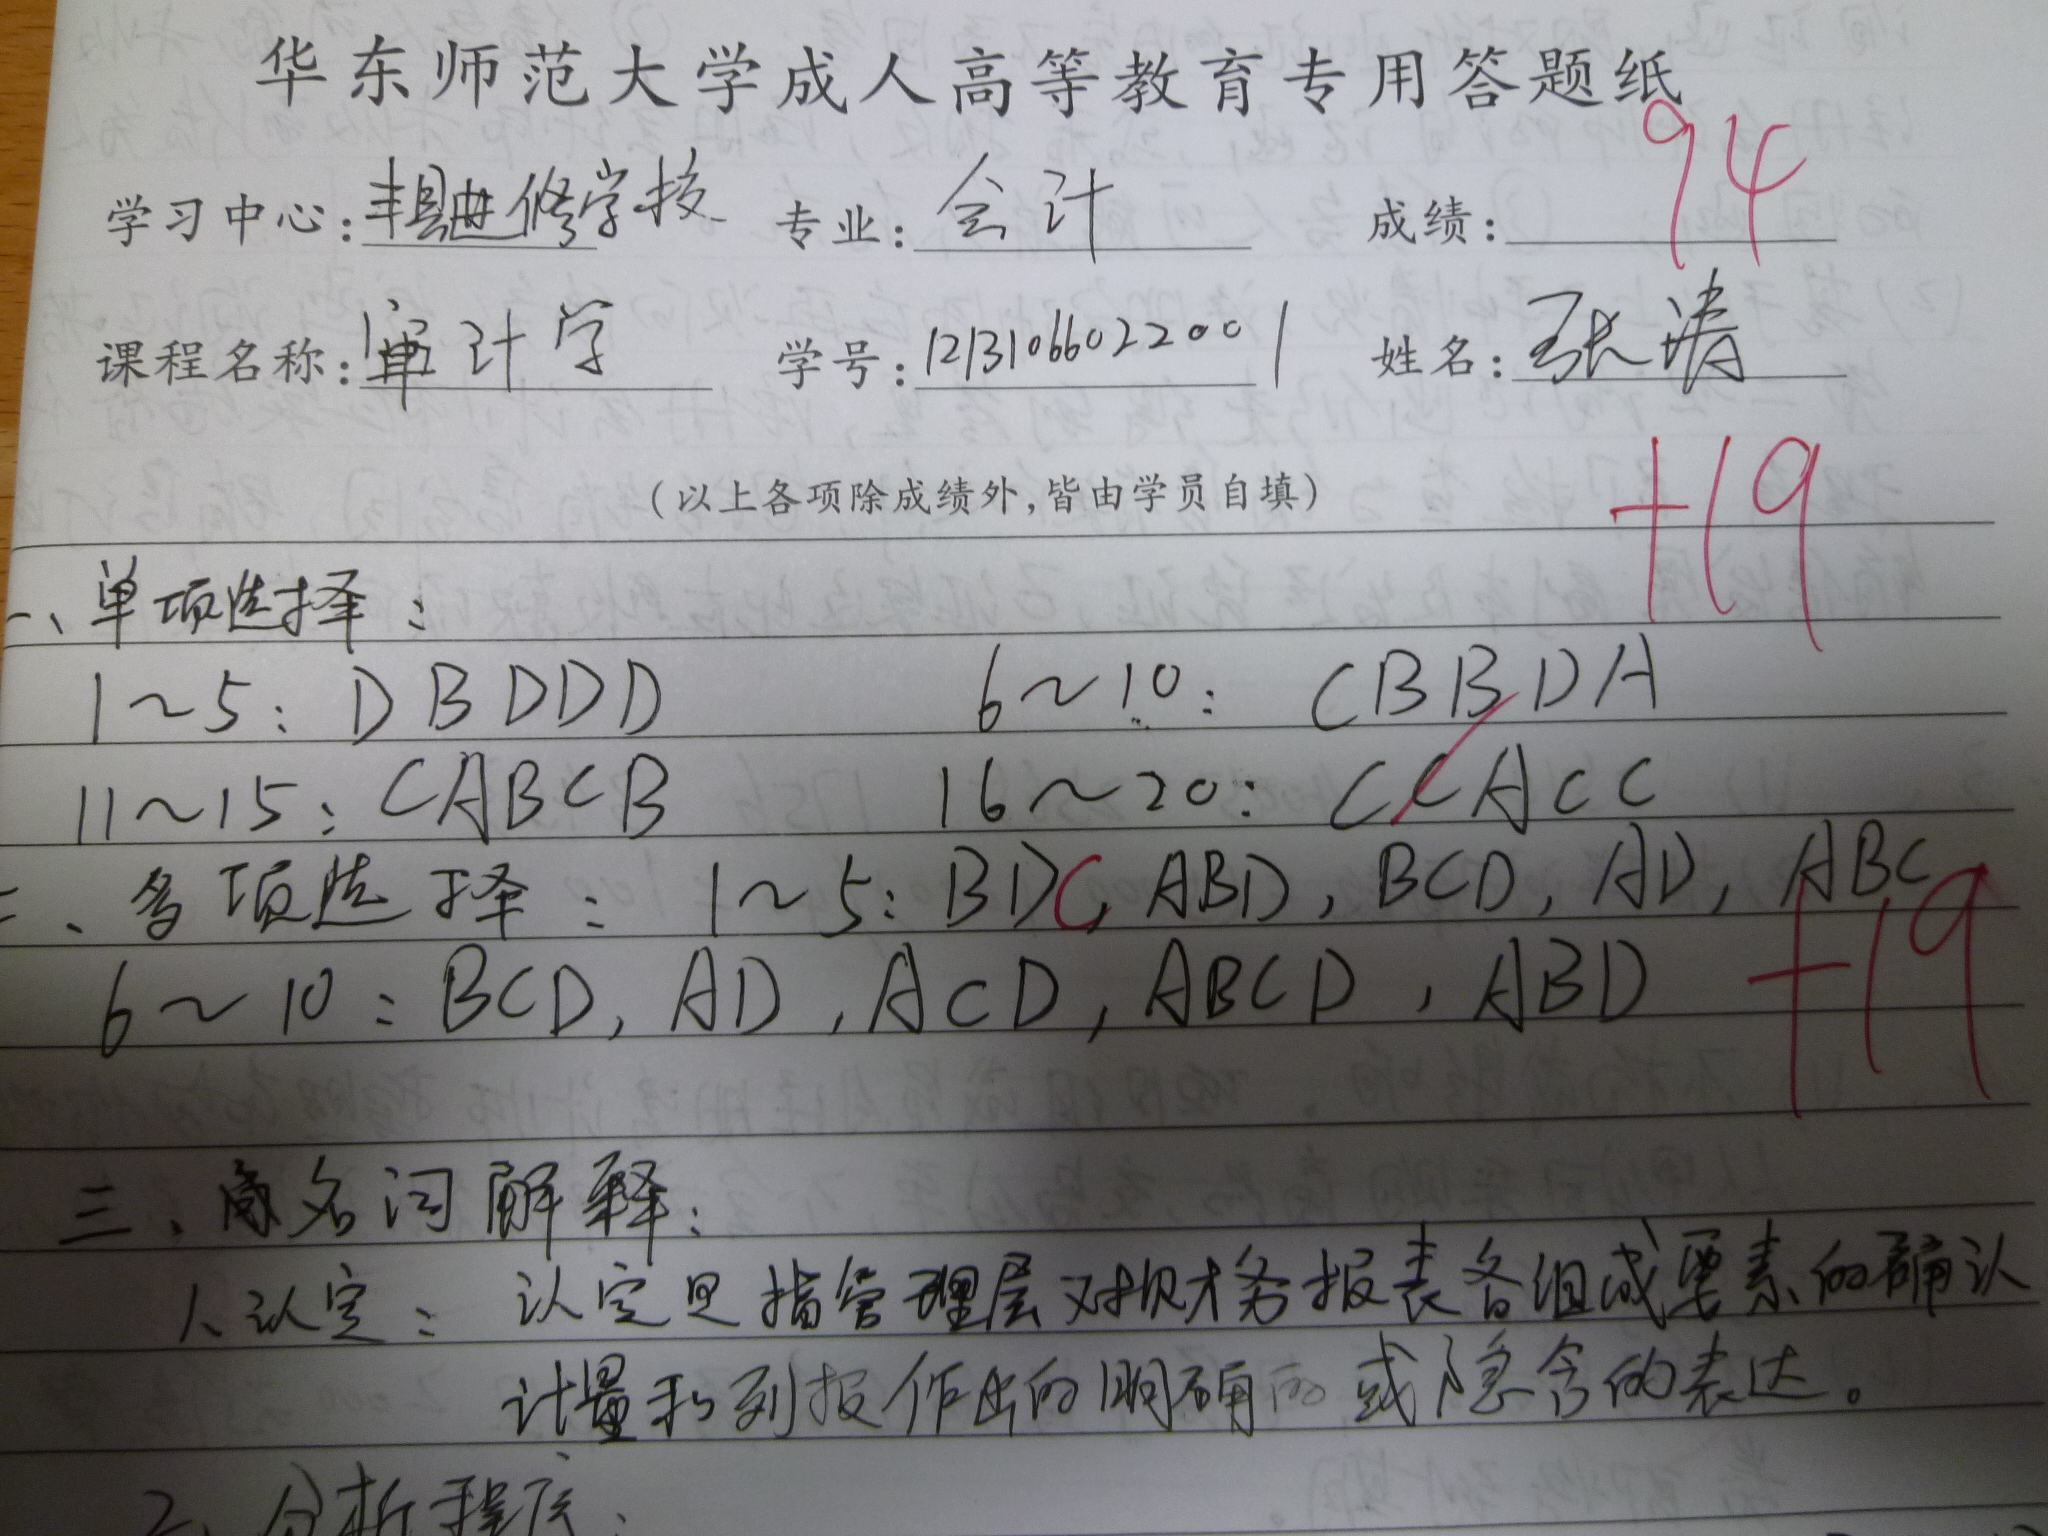 华东师范大学成人高等教育专用答题纸
94
学习中心: 丰县进修学校 专业: 会计 成绩:
课程名称: 审计学 学号: 1213106602200 1 姓名: 张涛
(以上各项除成绩外,皆由学员自填)
+19
一、单项选择:
1~5: D B D D D 6~10: C B B D A
11~15: C A B C B 16~20: C C A C C
二、多项选择: 1~5: BDC, ABD, BCD, AD, ABC
6~10: BCD, AD, ACD, ABCD, ABD
+19
三、名词解释:
1、认定: 认定是指管理层对财务报表各组成要素的确认
计量和列报作出的明确的或隐含的表达。
2、分析程序: